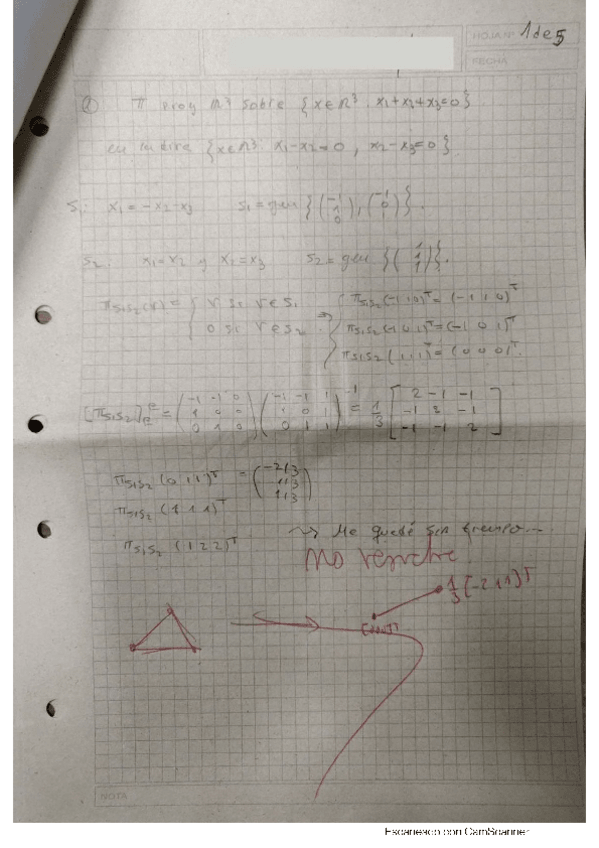 HOJA Nº 1 de 5
FECHA
π proy R³ sobre {x∈R³: x₁+x₂+x₃=0}
en la dire {x∈R³: x₁-x₂=0, x₂-x₃=0}
S₁: x₁=-x₂-x₃ S₁=gen{(-1 1 0), (-1 0 1)}.
S₂: x₁=x₂ y x₂=x₃ S₂=gen{(1 1 1)}.
π_{S₁S₂}(v)= { v si v∈S₁ 0 si v∈S₂ ⇒ { π_{S₁S₂}(-1 1 0)ᵀ=(-1 1 0)ᵀ
π_{S₁S₂}(-1 0 1)ᵀ=(-1 0 1)ᵀ
π_{S₁S₂}(1 1 1)ᵀ=(0 0 0)ᵀ.
[π_{S₁S₂}]ᴱ_E = (-1 -1 0 / 1 0 0 / 0 1 0) (-1 -1 1 / 1 0 1 / 0 1 1)⁻¹ = 1/3 [2 -1 -1 / -1 2 -1 / -1 -1 2]
π_{S₁S₂}(0 1 1)ᵀ = (-2/3 1/3 1/3)
π_{S₁S₂}(1 1 1)ᵀ
π_{S₁S₂}(1 2 2)ᵀ ⇝ Me quedé sin tiempo...
1/3[-2 1 1]ᵀ
[000]ᵀ
NOTA
Escaneado con CamScanner